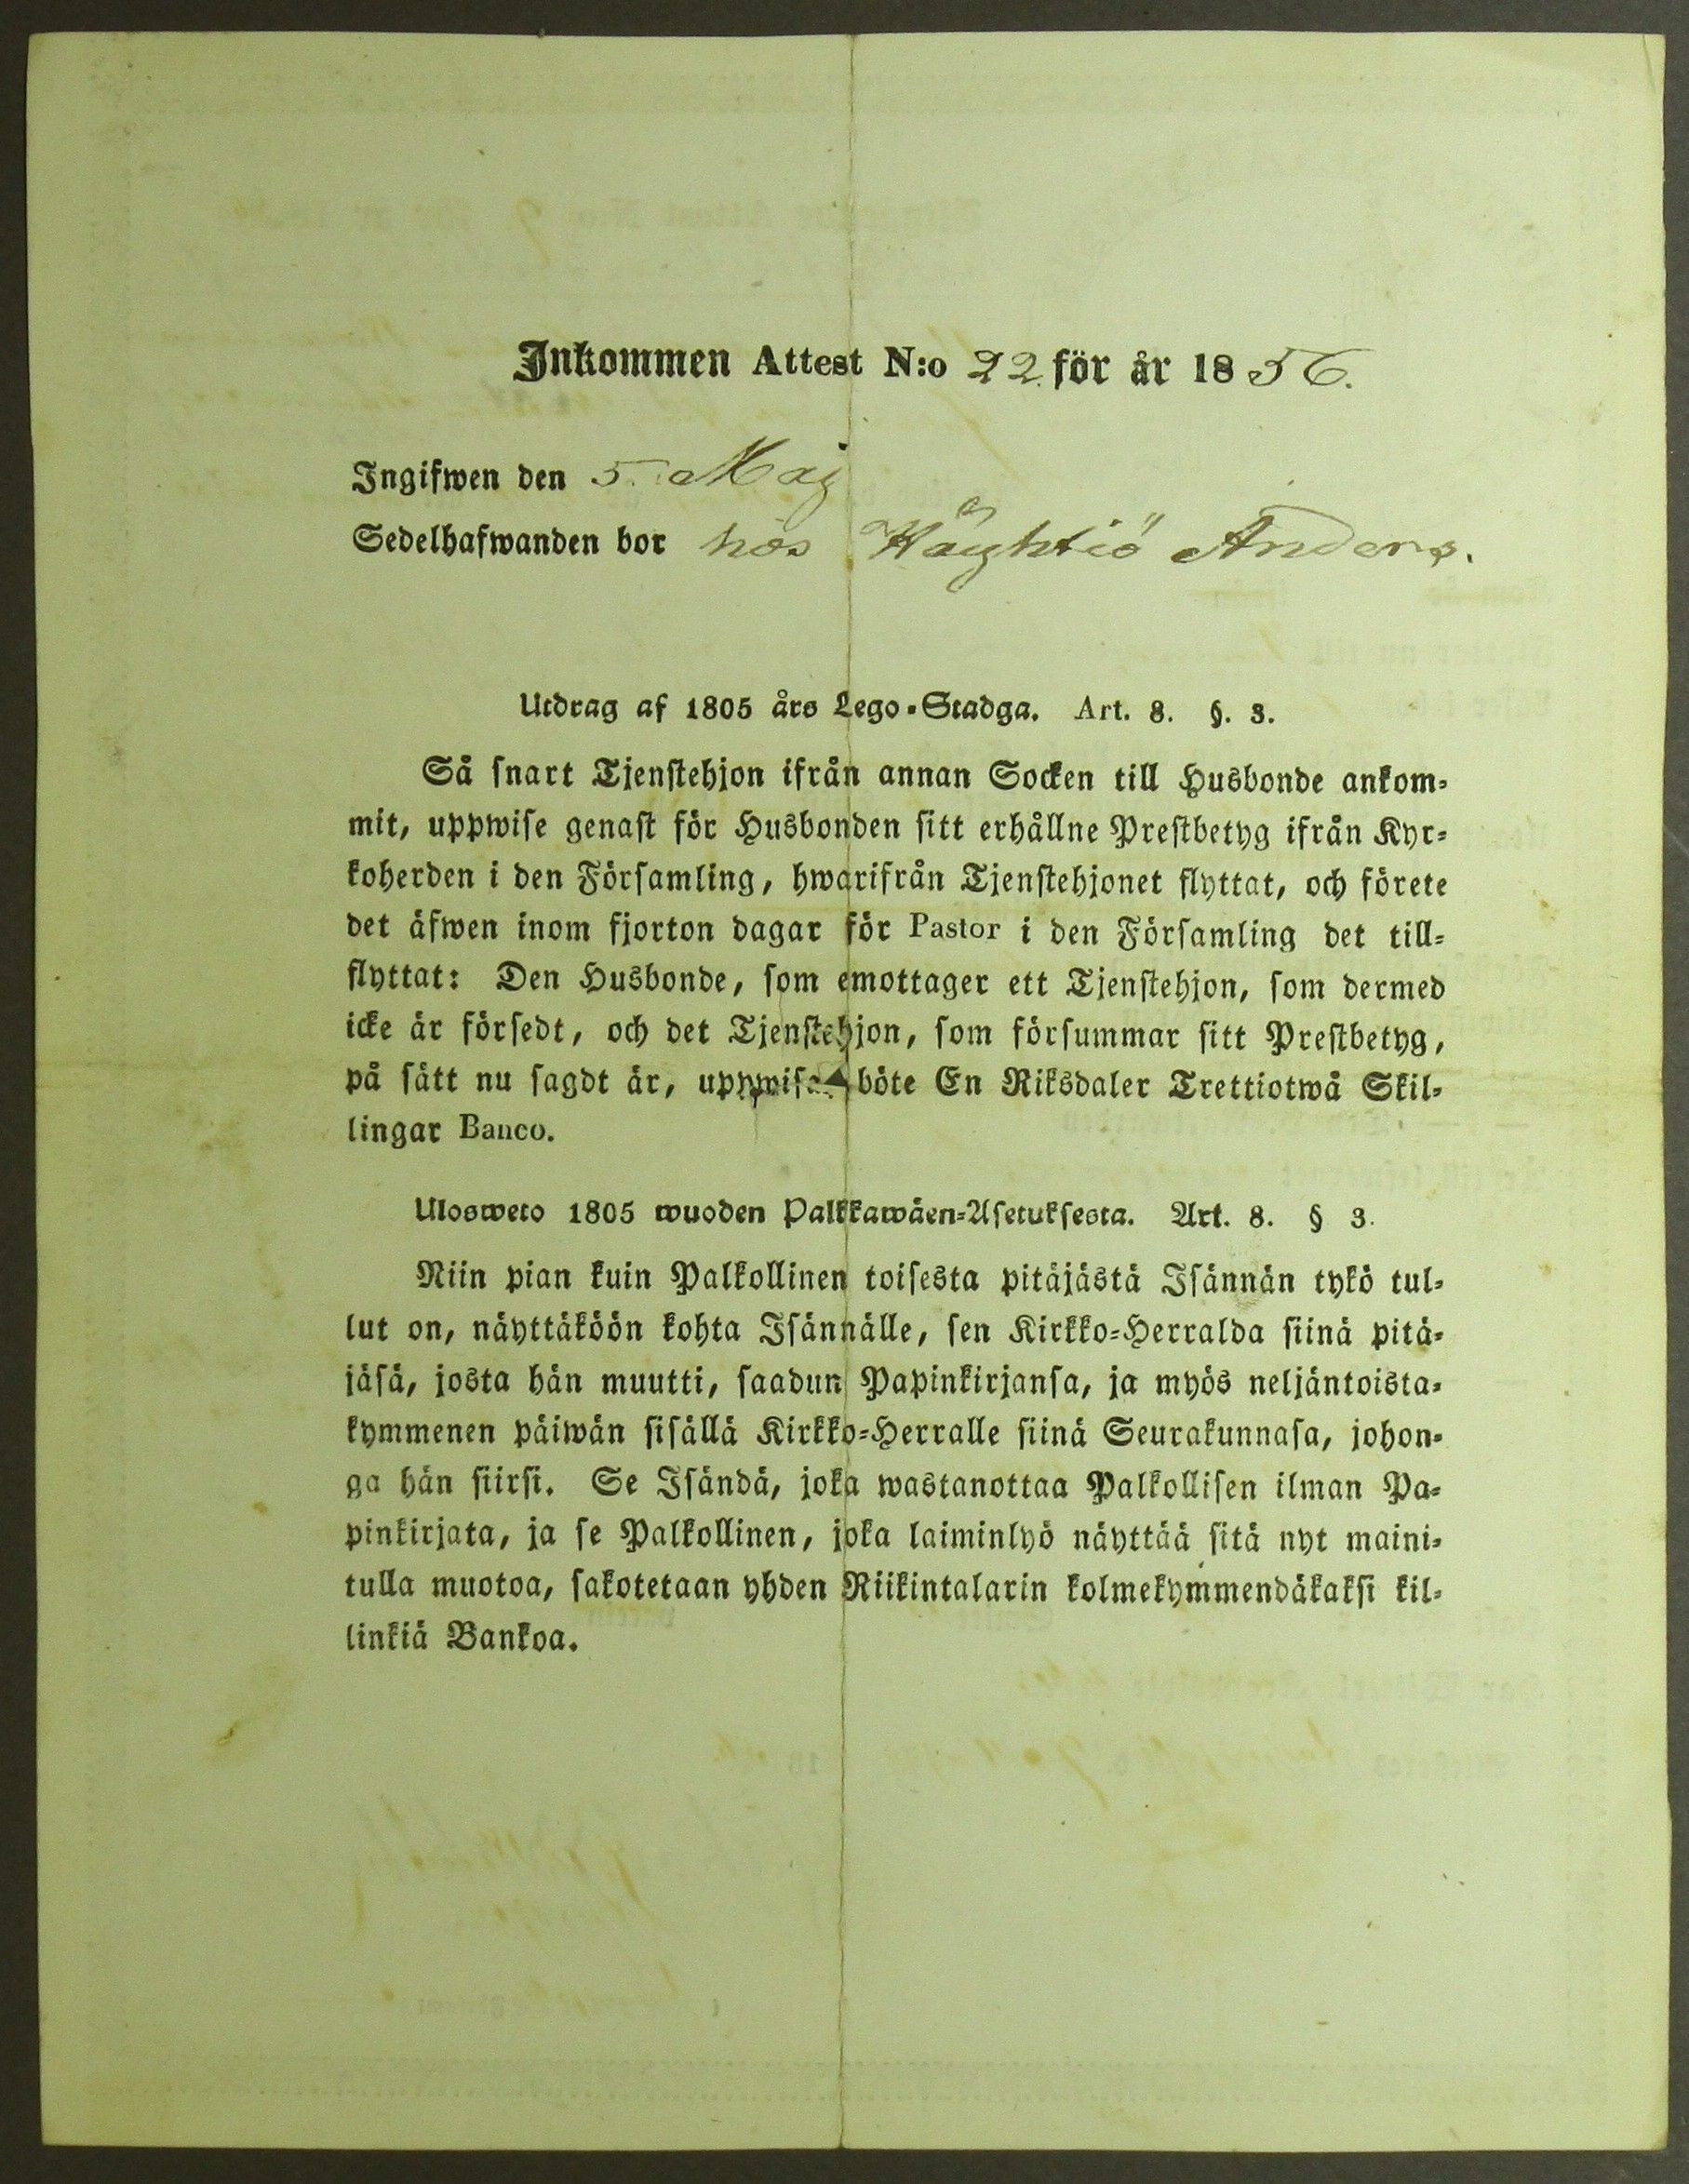 Inkommen Attest N:o 22 för år 1856.
Ingifwen den 5. Maj
Sedelhafwanden bor hos Käyhtiö Anders.
Utdrag af 1805 års Lego-Stadga. Art. 8. §. 3.
Så snart Tjenstehjon ifrån annan Socken till Husbonde ankom-
mit, uppwise genast för Husbonden sitt erhållne Prestbetyg ifrån Kyr-
koherden i den Församling, hwarifrån Tjenstehjonet flyttat, och förete
det äfwen inom fjorton dagar för Pastor i den Församling det till-
flyttat: Den Husbonde, som emottager ett Tjenstehjon, som dermed
icke är försedt, och det Tjenstehjon, som försummar sitt Prestbetyg,
på sätt nu sagdt är, uppwisa, böte En Riksdaler Trettiotwå Skil-
lingar Banco.
Ulosweto 1805 wuoden Palkkawäen-Asetuksesta. Art. 8. § 3.
Niin pian kuin Palkollinen toisesta pitäjästä Isännän tykö tul-
lut on, näyttäköön kohta Isännälle, sen Kirkko-Herralda siinä pitä-
jäsä, josta hän muutti, saadun Papinkirjansa, ja myös neljäntoista-
kymmenen päiwän sisällä Kirkko-Herralle siinä Seurakunnasa, johon-
ga hän siirsi. Se Isändä, joka wastanottaa Palkollisen ilman Pa-
pinkirjata, ja se Palkollinen, joka laiminlyö näyttää sitä nyt maini-
tulla muotoa, sakotetaan yhden Riikintalarin kolmekymmendäkaksi kil-
linkiä Bankoa.